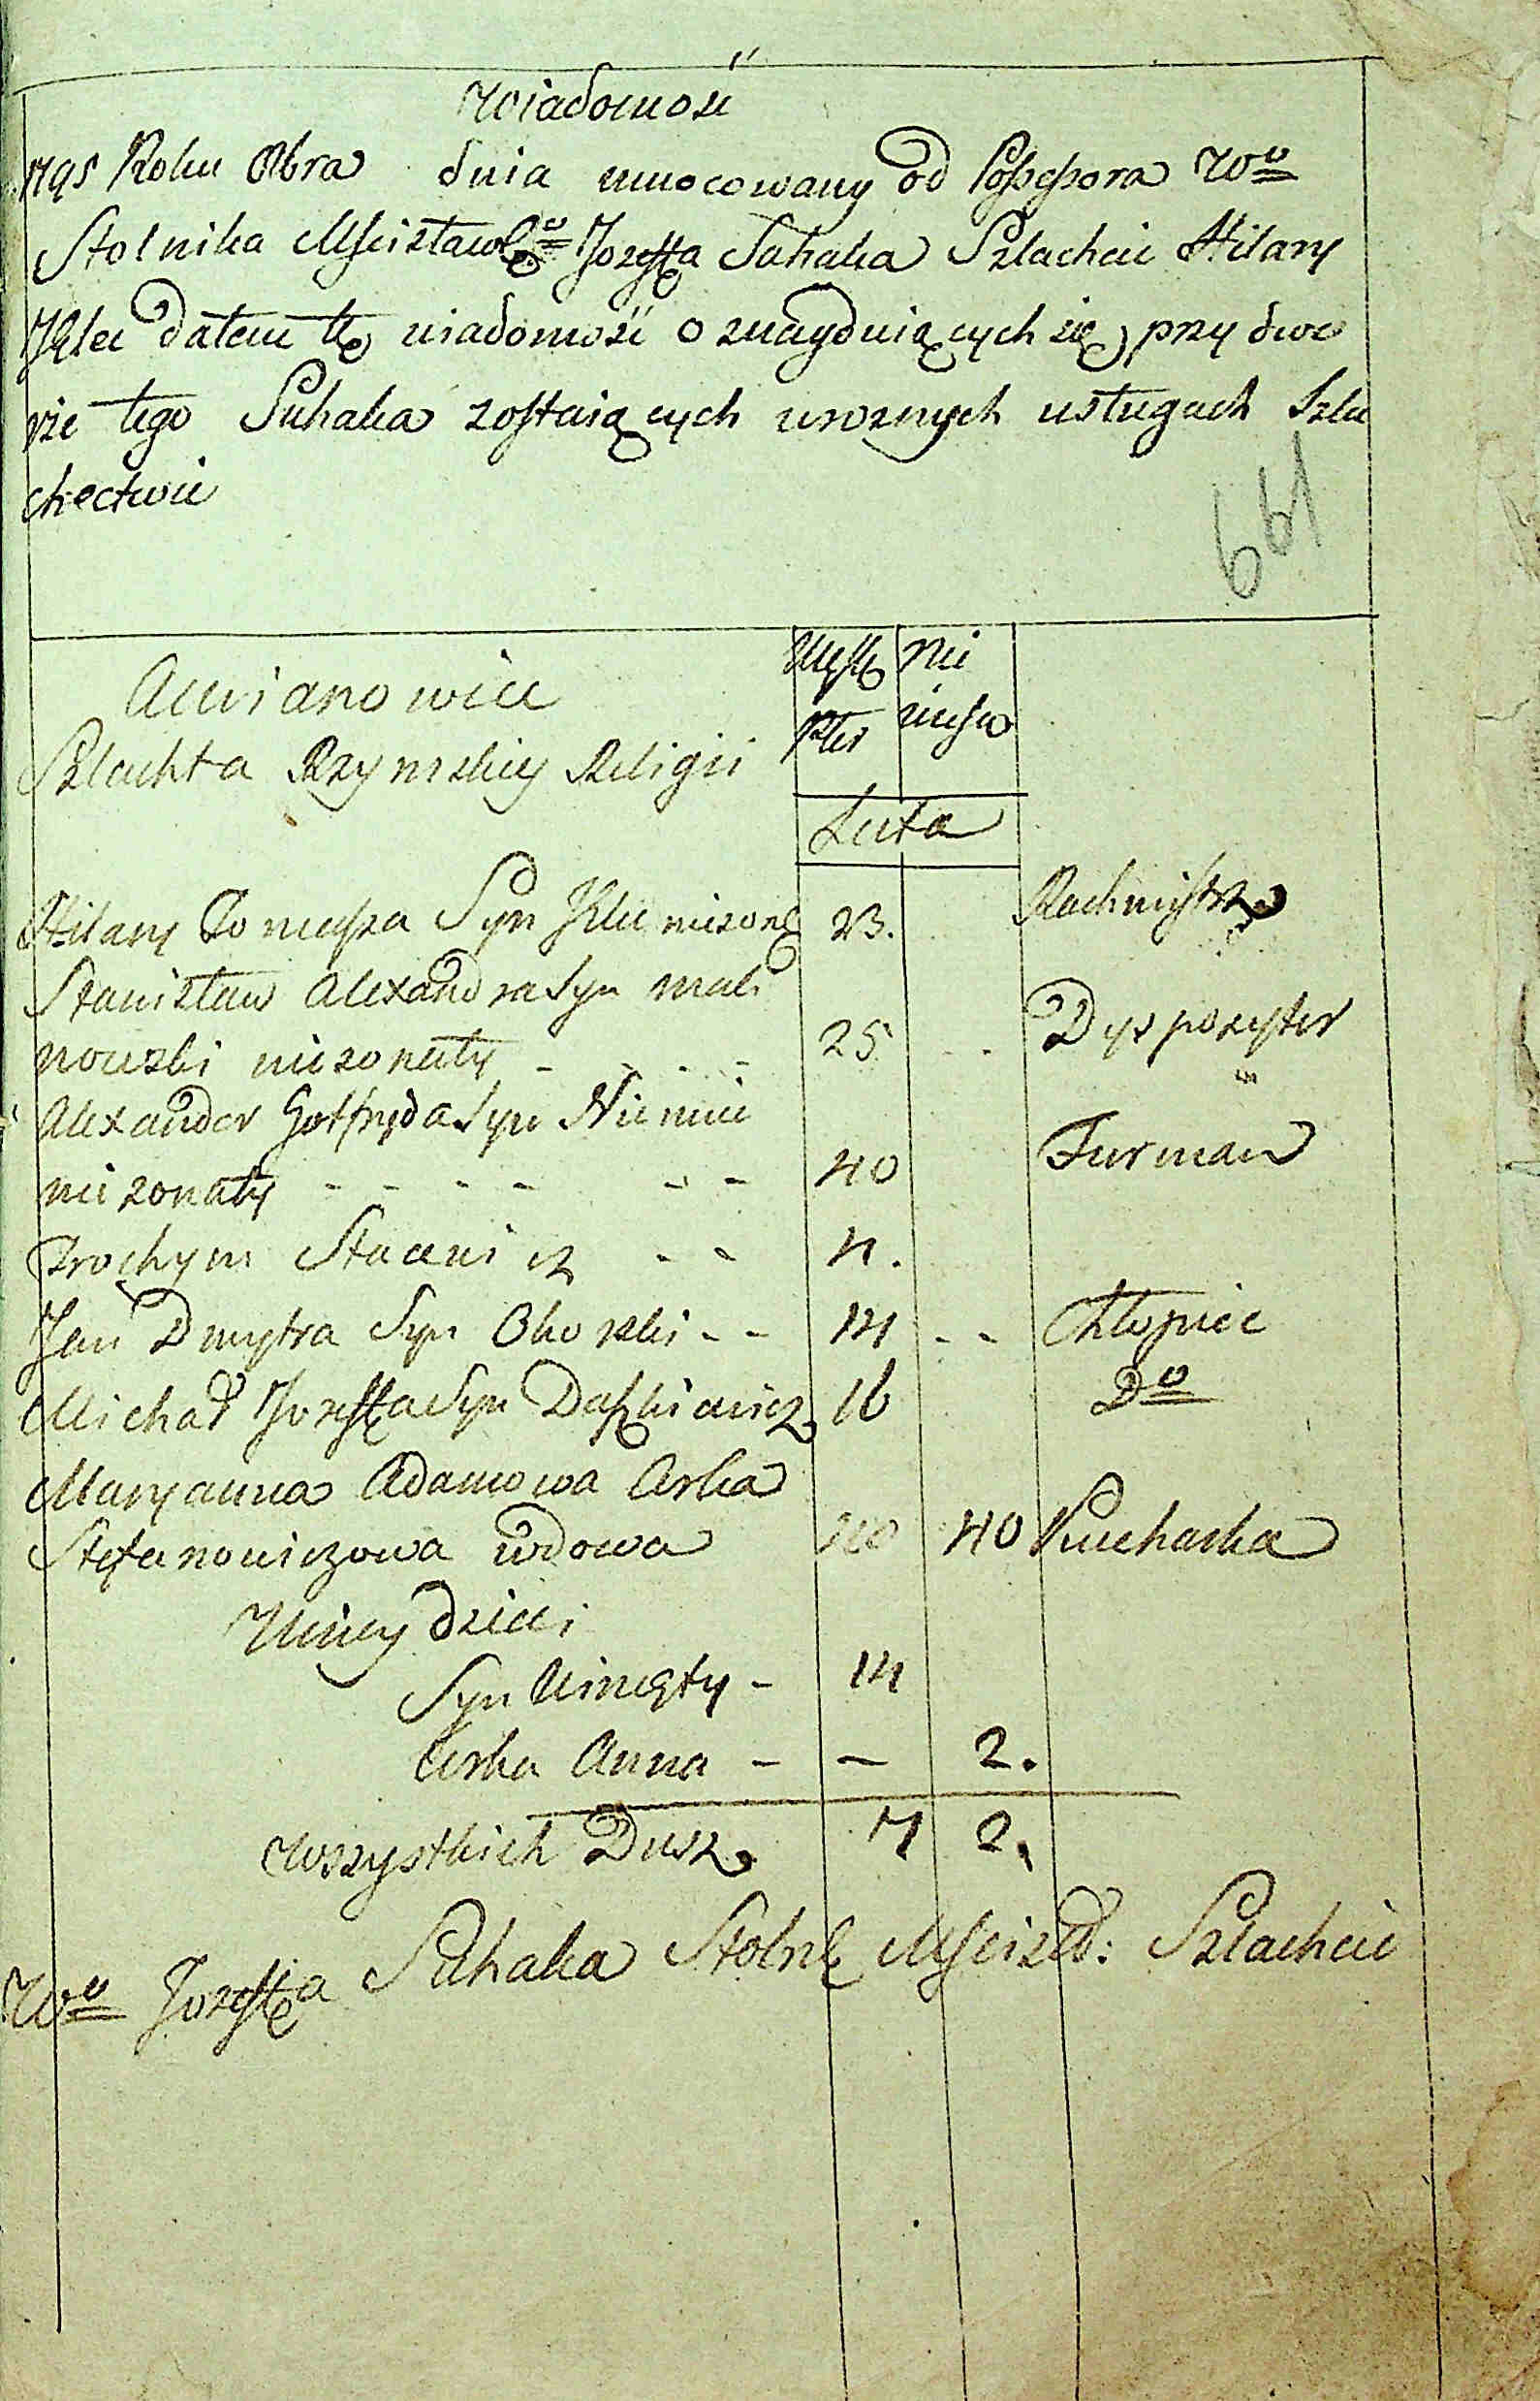 Wiadomość
1795 Roku 8bra dnia umocowany od Possessora Wo
Stolnika Mscisławgo Jozeffa Suhaka Szlachcic Hilary
dałem tę wiadomość o znayduiących się przy dwo
rze tego Suhaka zostaiących w roznych usługach Szla
chectwie
661
Męsk Nie
Plci wiesw
Szlachta Rzymskiey Religii
Lata
Hilary Tomasza Syn nieżon 23. Rachmistrz
Stanisław Alexandra Syn Mali
nowski nieżonaty - - - 25 - - Dyspozytor
Alexander Gotfryda Syn Niemie
nieżonaty - - - - - - 40 Furman
Trochym - - 4.
Jan Dmytra Syn - - 14 - - Chłopiec
Michał Jozeffa Syn Daszkiewicz 16 Do
Maryanna Adamowa Corka
Stefanowiczowa wdowa 40 Kucharka
U niey dzieci
Syn Wincęty - 14
Corka Anna - - 2.
Wszystkich Dusz 7 2.
Wo Jozeffa Suhaka Stolnk Mscisł: Szlachcic